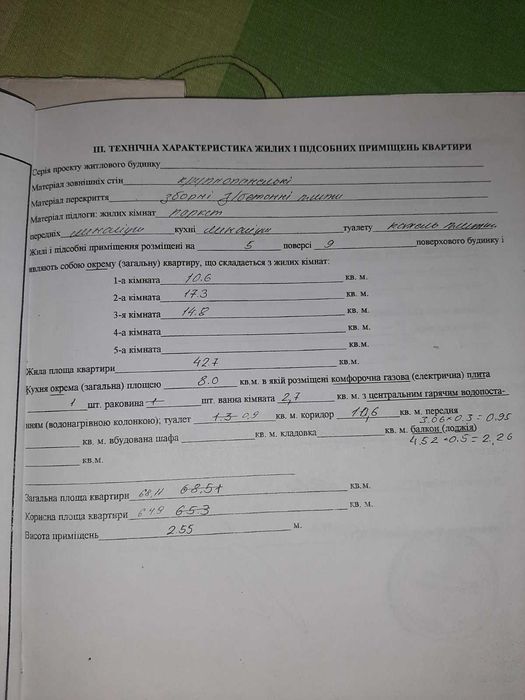 III. ТЕХНІЧНА ХАРАКТЕРИСТИКА ЖИЛИХ І ПІДСОБНИХ ПРИМІЩЕНЬ КВАРТИРИ
Серія проекту житлового будинку
Матеріал зовнішніх стін крупнопанельні
Матеріал перекриття зборні з/бетонні плити
Матеріал підлоги: жилих кімнат паркет
передніх лінолеум кухні лінолеум туалету кахель плитки
Жилі і підсобні приміщення розміщені на 5 поверсі 9 поверхового будинку і
являють собою окрему (загальну) квартиру, що складається з жилих кімнат:
1-а кімната 10.6 кв. м.
2-а кімната 17.3 кв. м.
3-я кімната 14.8 кв. м.
4-а кімната кв.м.
5-а кімната кв.м.
Жила площа квартири 42.7 кв.м.
Кухня окрема (загальна) площею 8.0 кв.м. в якій розміщені комфорочна газова (електрична) плита
1 шт. раковина 1 шт. ванна кімната 2,7 кв. м. з центральним гарячим водопоста-
нням (водонагрівною колонкою); туалет 1.3 0,9 кв. м. коридор 10,6 кв. м. передня
3.06×0.3=0.95
кв. м. вбудована шафа кв. м. кладовка кв. м. балкон (лоджія)
4,52×0.5=2,26
кв.м.
Загальна площа квартири 68,11 68.51 кв.м.
Корисна площа квартири 64.9 65.3 кв. м.
Висота приміщень 2.55 м.